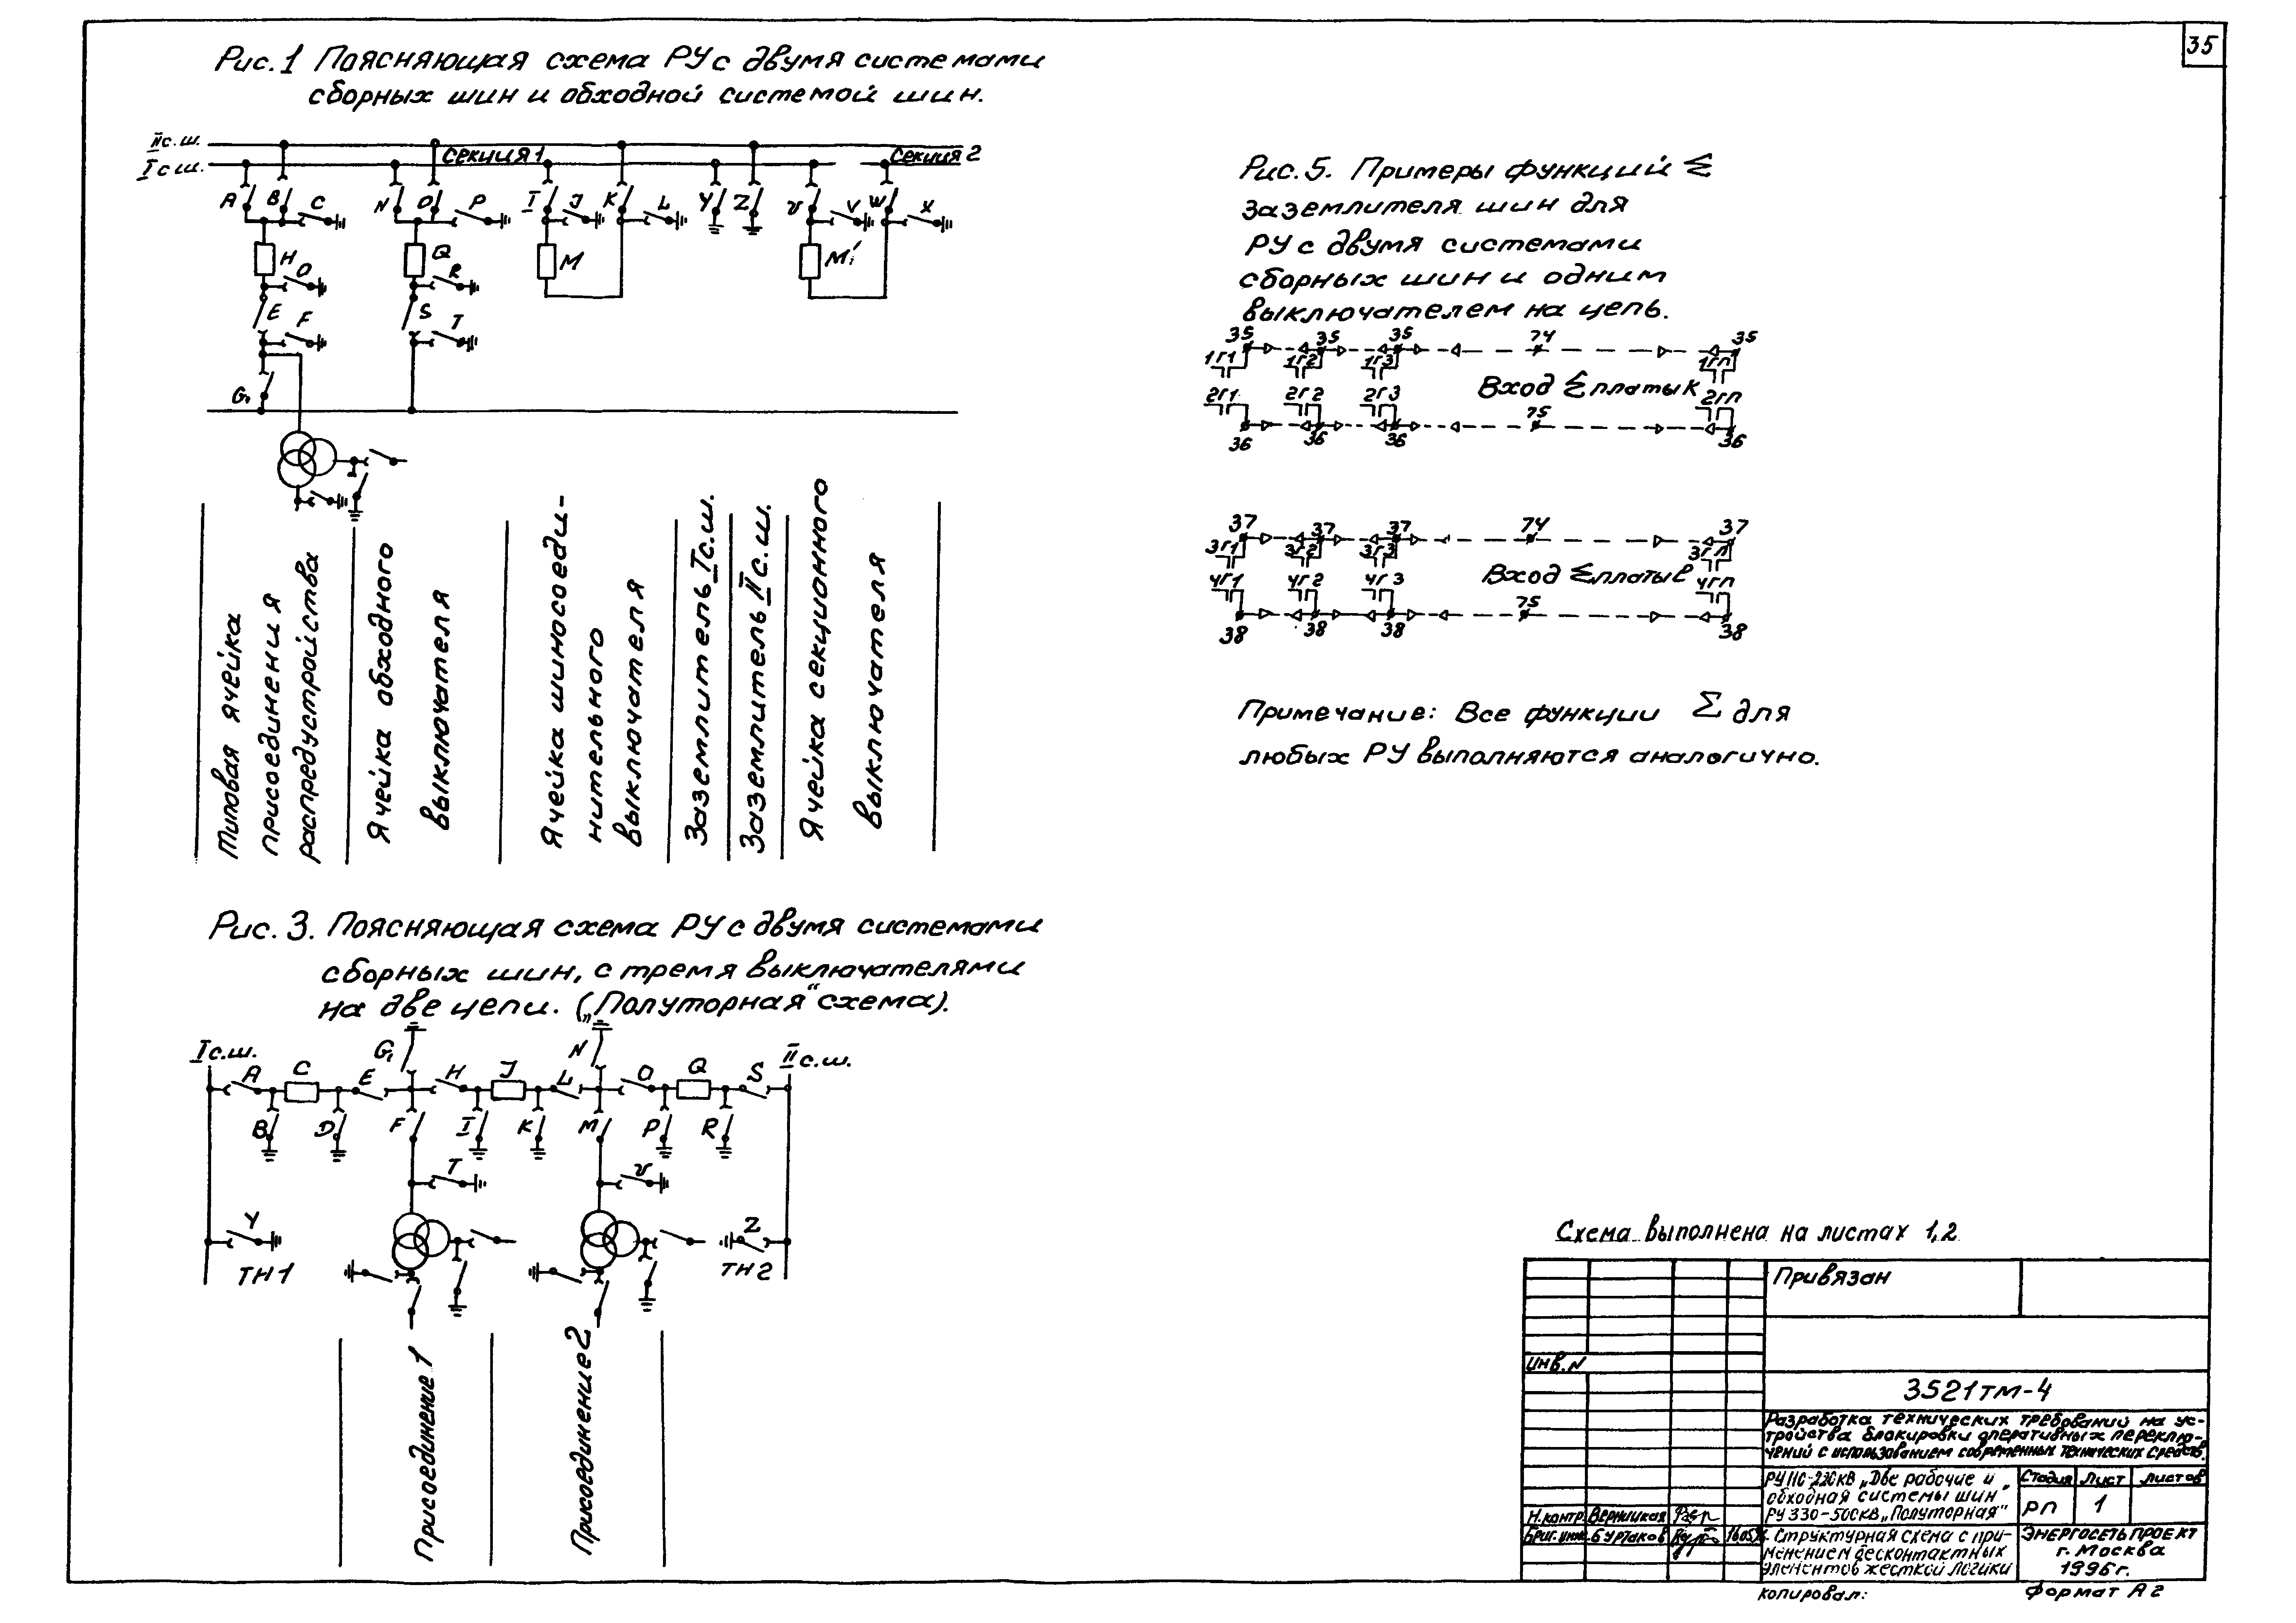 35
Рис.1 Поясняющая схема РУ с двумя системами
сборных шин и обходной системой шин.
II с.ш.
I с ш.
Секция 1
Секция 2
A B C N O P I J K L Y Z V W X
H O Q R M M'
E F S T
G
Типовая ячейка
присоединения
распредустройства
Ячейка обходного
выключателя
Ячейка шиносоеди-
нительного
выключателя
Заземлитель I с.ш.
Заземлитель II с.ш.
Ячейка секционного
выключателя
Рис. 3. Поясняющая схема РУ с двумя системами
сборных шин, с тремя выключателями
на две цепи. („Полуторная“ схема).
I с.ш.
G
N
II с.ш.
A C E H J L O Q S
B D F I K M P R
T
Y
Z
ТН1
ТН2
Присоединение 1
Присоединение 2
Рис. 5. Примеры функций Σ
заземлителя шин для
РУ с двумя системами
сборных шин и одним
выключателем на цепь.
35 35 35 74 35
1г1 1г2 1г3 1гп
Вход Σ платы К
2г1 2г2 2г3 2гп
36 36 36 75 36
37 37 37 74 37
3г1 3г2 3г3 3гп
Вход Σ платы
4г1 4г2 4г3 4гп
38 38 38 75 38
Примечание: Все функции Σ для
любых РУ выполняются аналогично.
Схема выполнена на листах 1,2
Привязан
Инв.N
3521тм-4
Разработка технических требований на ус-
тройства блокировки оперативных переклю-
чений с использованием современных технических средств.
РУ 110-220кВ „Две рабочие и
обходная системы шин"
РУ 330-500кВ „Полуторная"
Стадия Лист Листов
РП 1
Н.контр. Верницкая
Бриг.инж. Буртаков
Структурная схема с при-
менением бесконтактных
элементов жесткой логики
ЭНЕРГОСЕТЬПРОЕКТ
г. Москва
1996г.
Копировал:
Формат А2